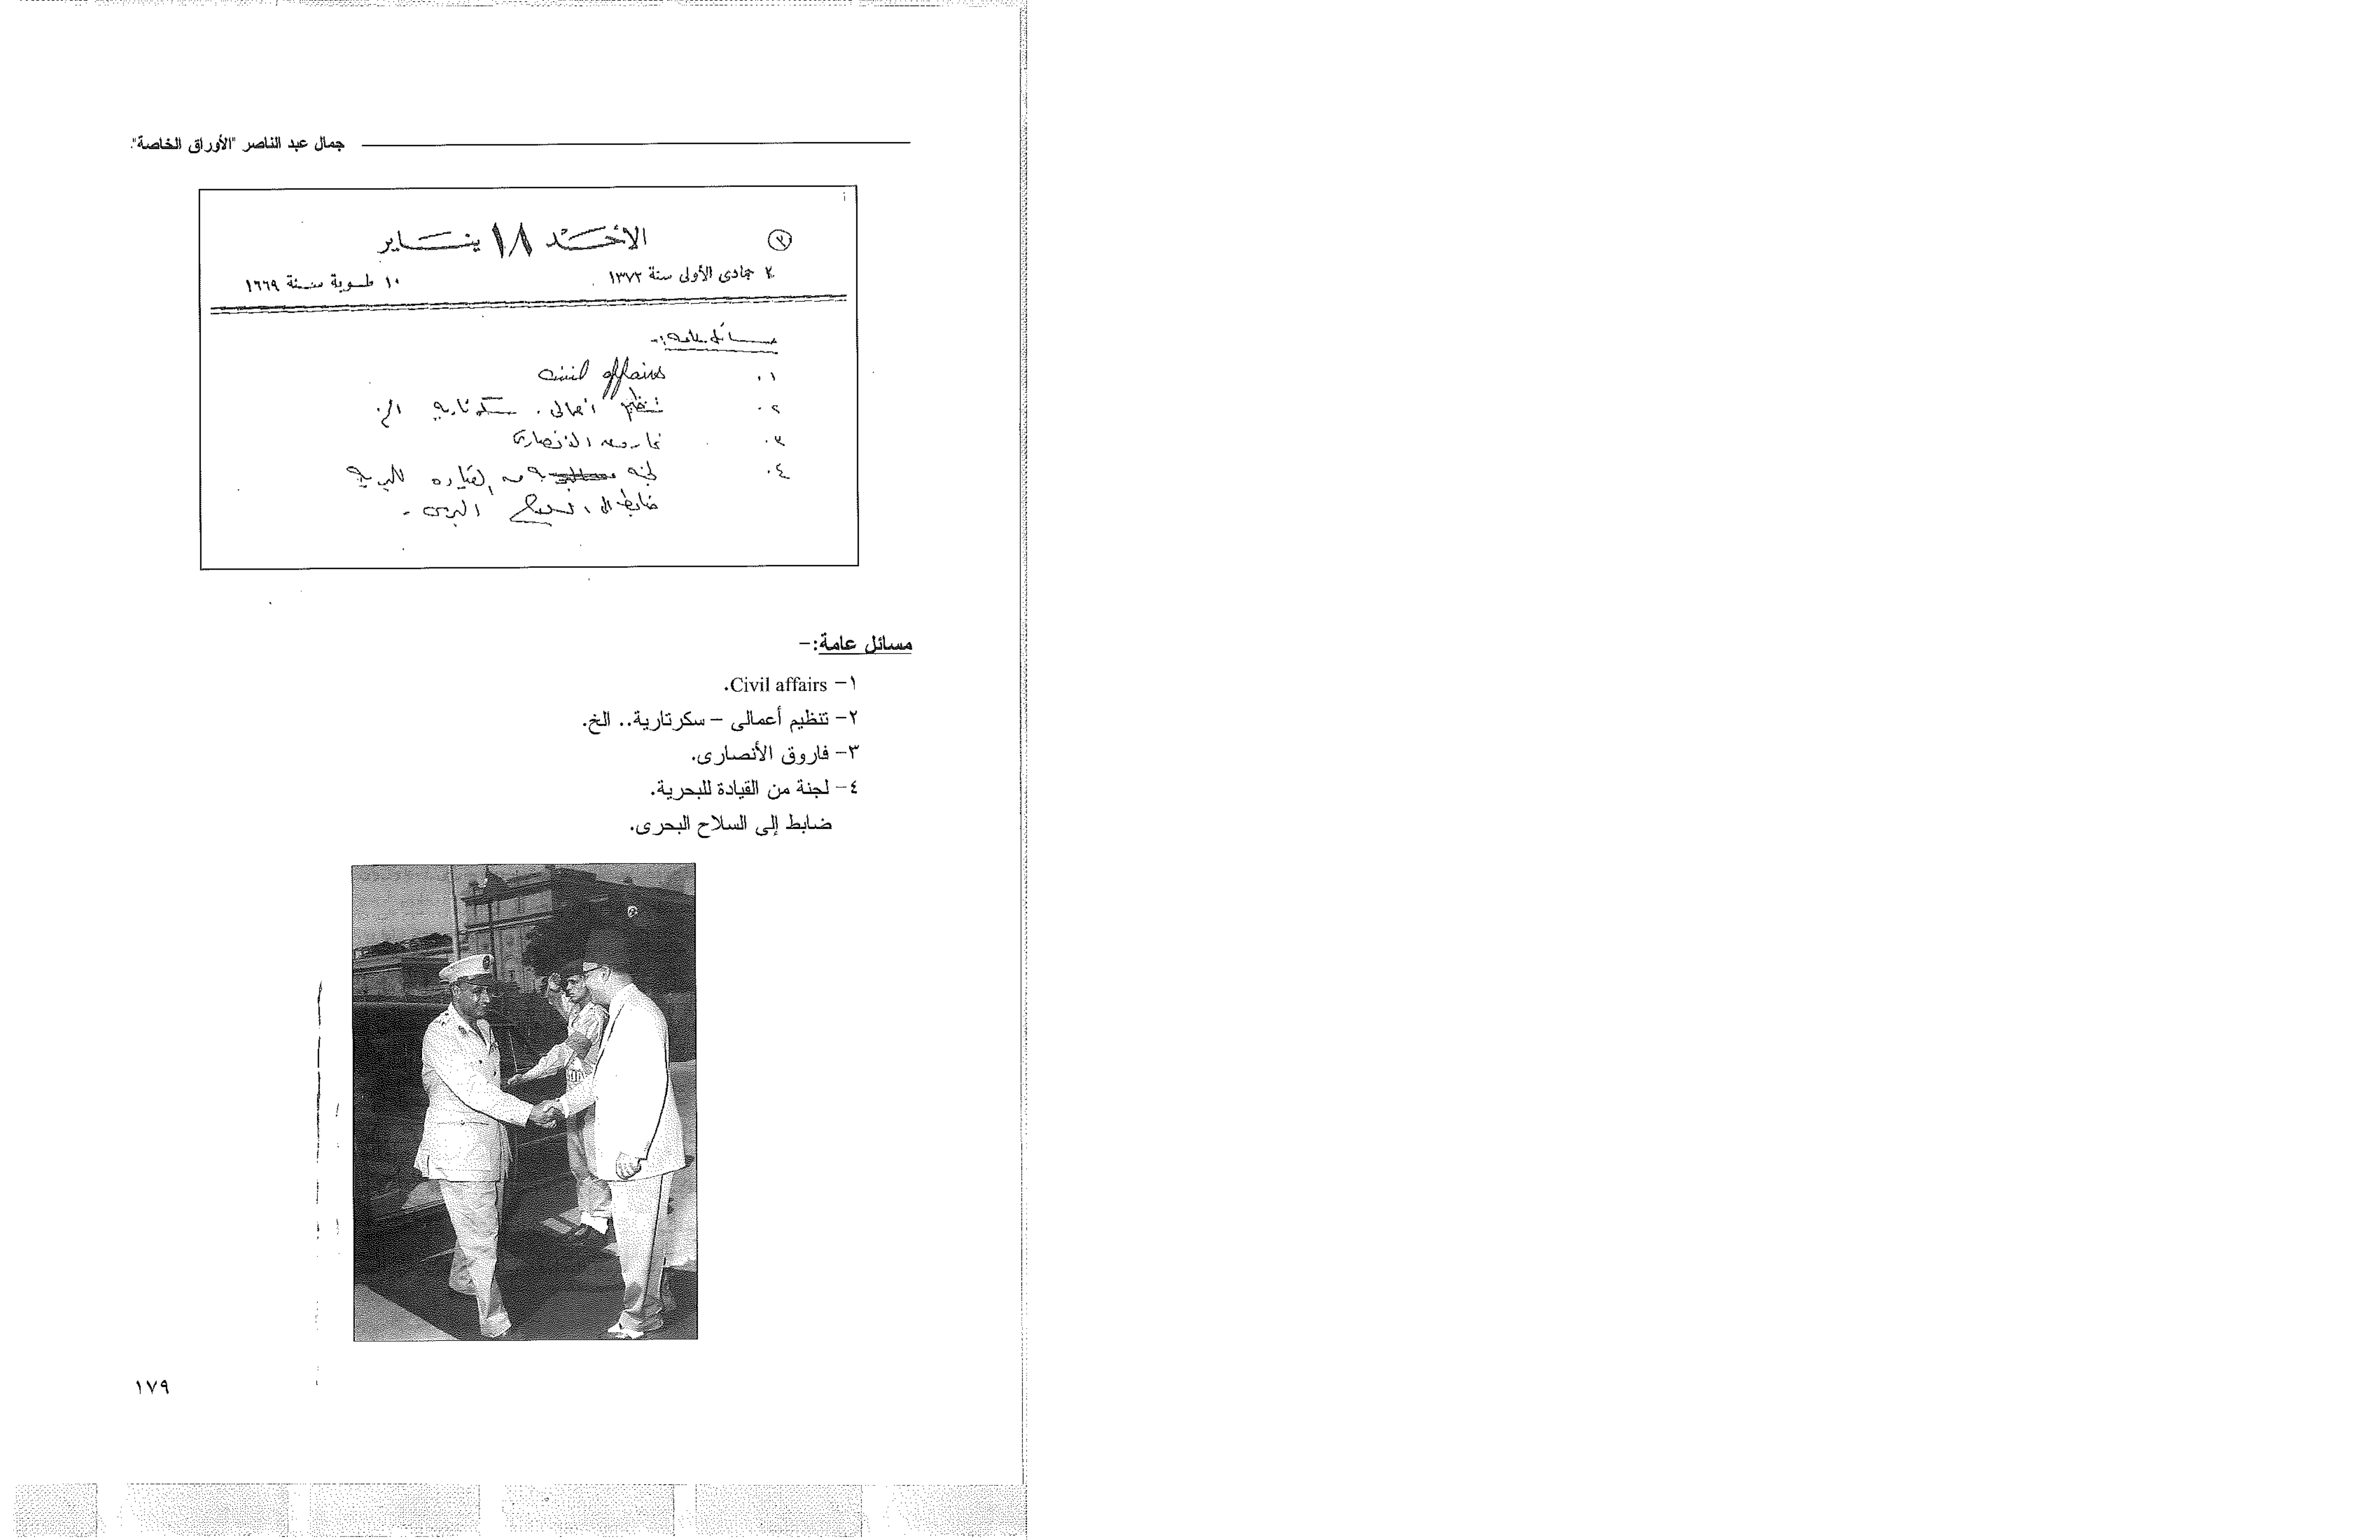 جمال عبد الناصر "الأوراق الخاصة".
٣
الأحد ١٨ يناير
٢ جمادى الأولى سنة ١٣٧٢
١٠ طوبة سنة ١٦٦٩
مسائل عامه :-
١. Civil affairs
٢. تنظيم اعمالى . سكرتاريه الخ.
٣. فاروق الانصارى
٤. لجنه من القياده للبحريه
ضابط الى السلاح البحرى .
مسائل عامة:-
١- Civil affairs.
٢- تنظيم أعمالى - سكرتارية.. الخ.
٣- فاروق الأنصارى.
٤- لجنة من القيادة للبحرية.
ضابط إلى السلاح البحرى.
١٧٩